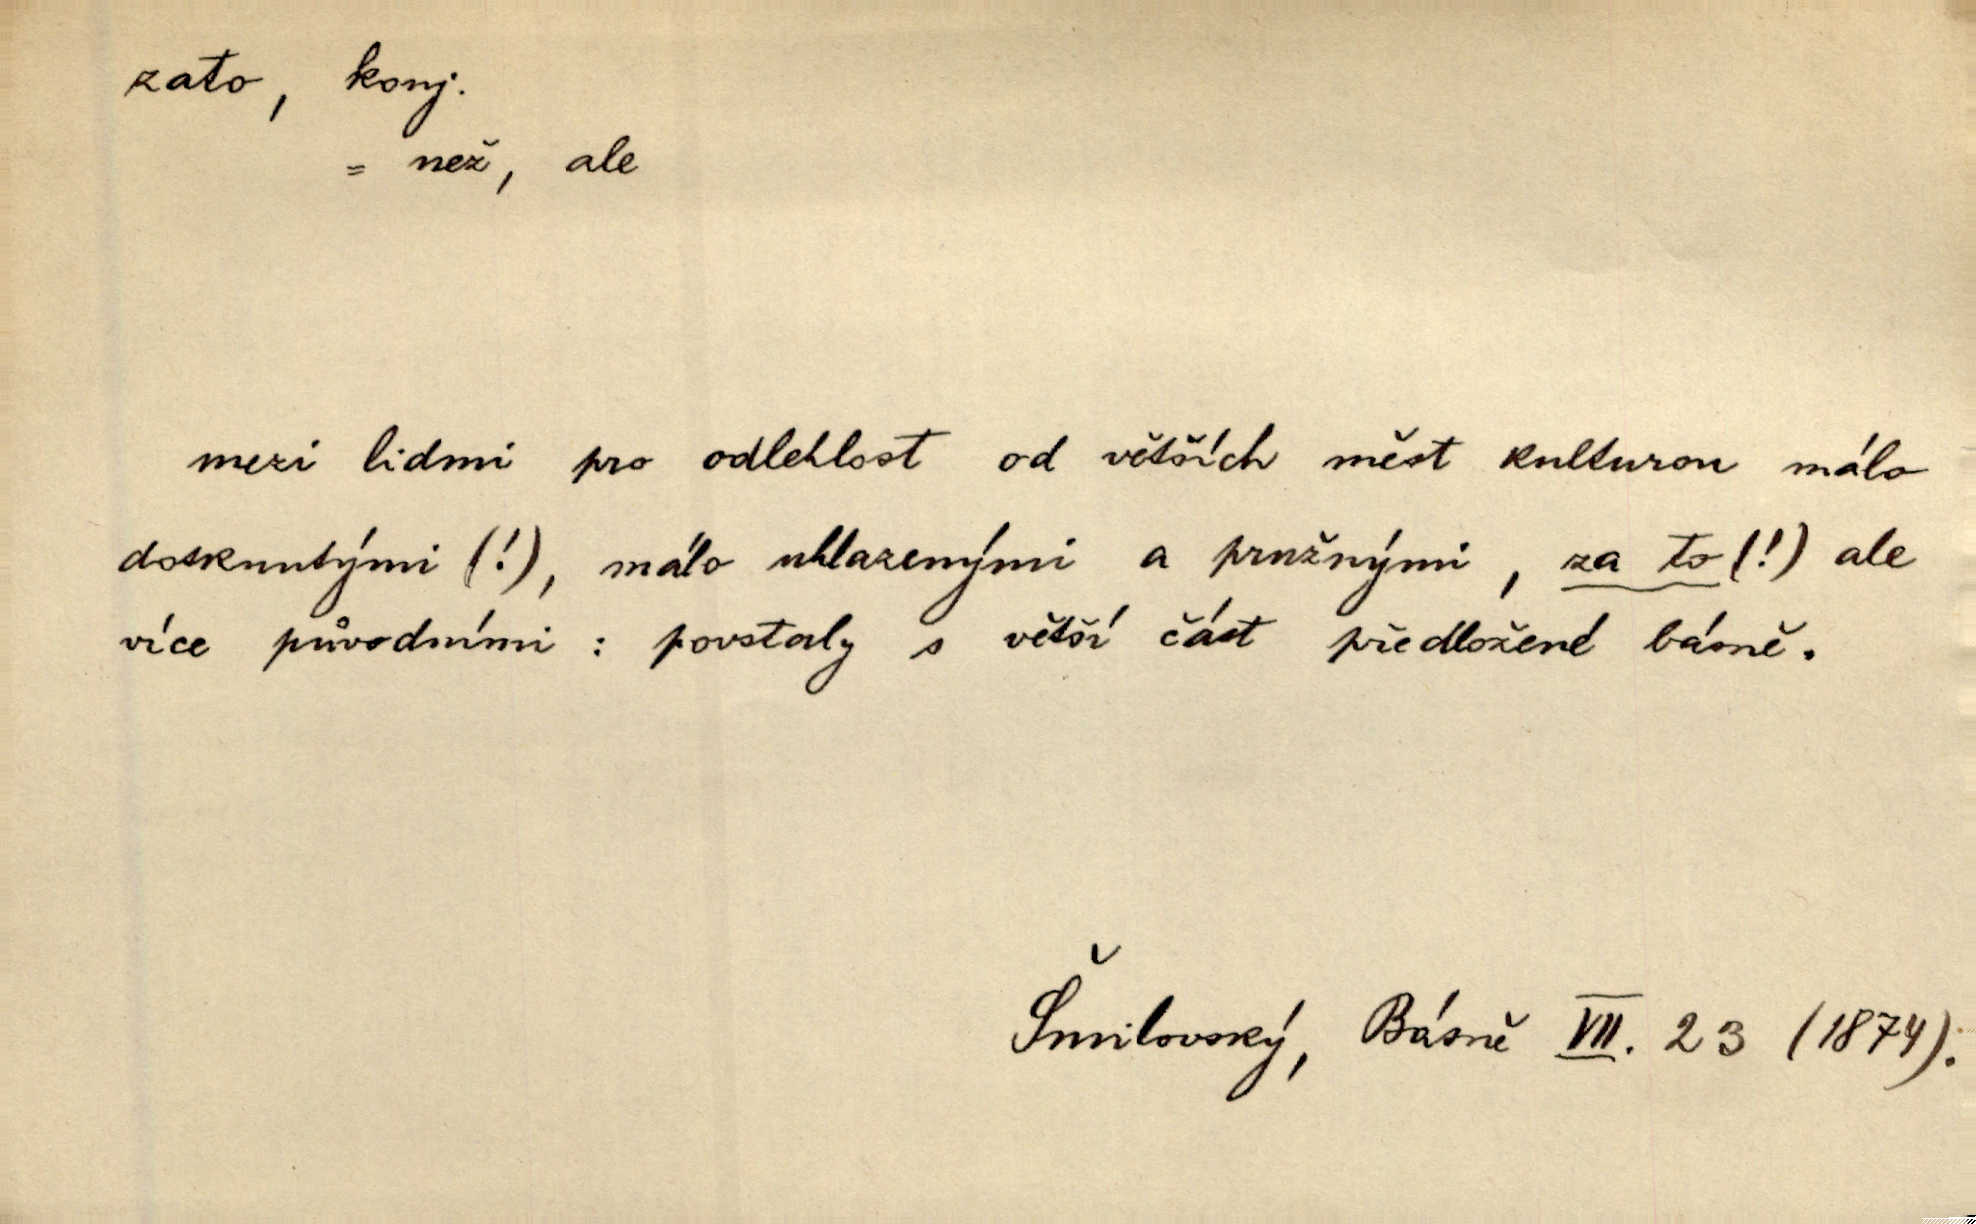 zato, konj.
= než, ale
mezi lidmi pro odlehlost od větších měst kulturou málo
dotknutými (!), málo uhlazenými a pružnými, za to (!) ale
více původními : povstaly s větší část předložené básně.
Šmilovský, Básně VII. 23 (1874).